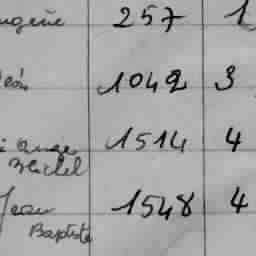 ugène 257 1
éon 1042 3
Ange 1514 4
Michel
Jean 1548 4
Baptiste